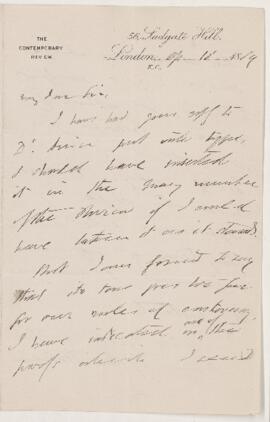 THE
CONTEMPORARY
REVIEW.
56, Ludgate Hill,
London, Ap 12 1869
E.C.
My dear Sir,
I have had your reply to
Dr. put into type,
I should have inserted
it in the number
of the Review if I could
have taken it as it stands.
But I am forced to say
that its tone goes too far
for our rules of controversy,
I have indicated one of
in the
proofs which I send